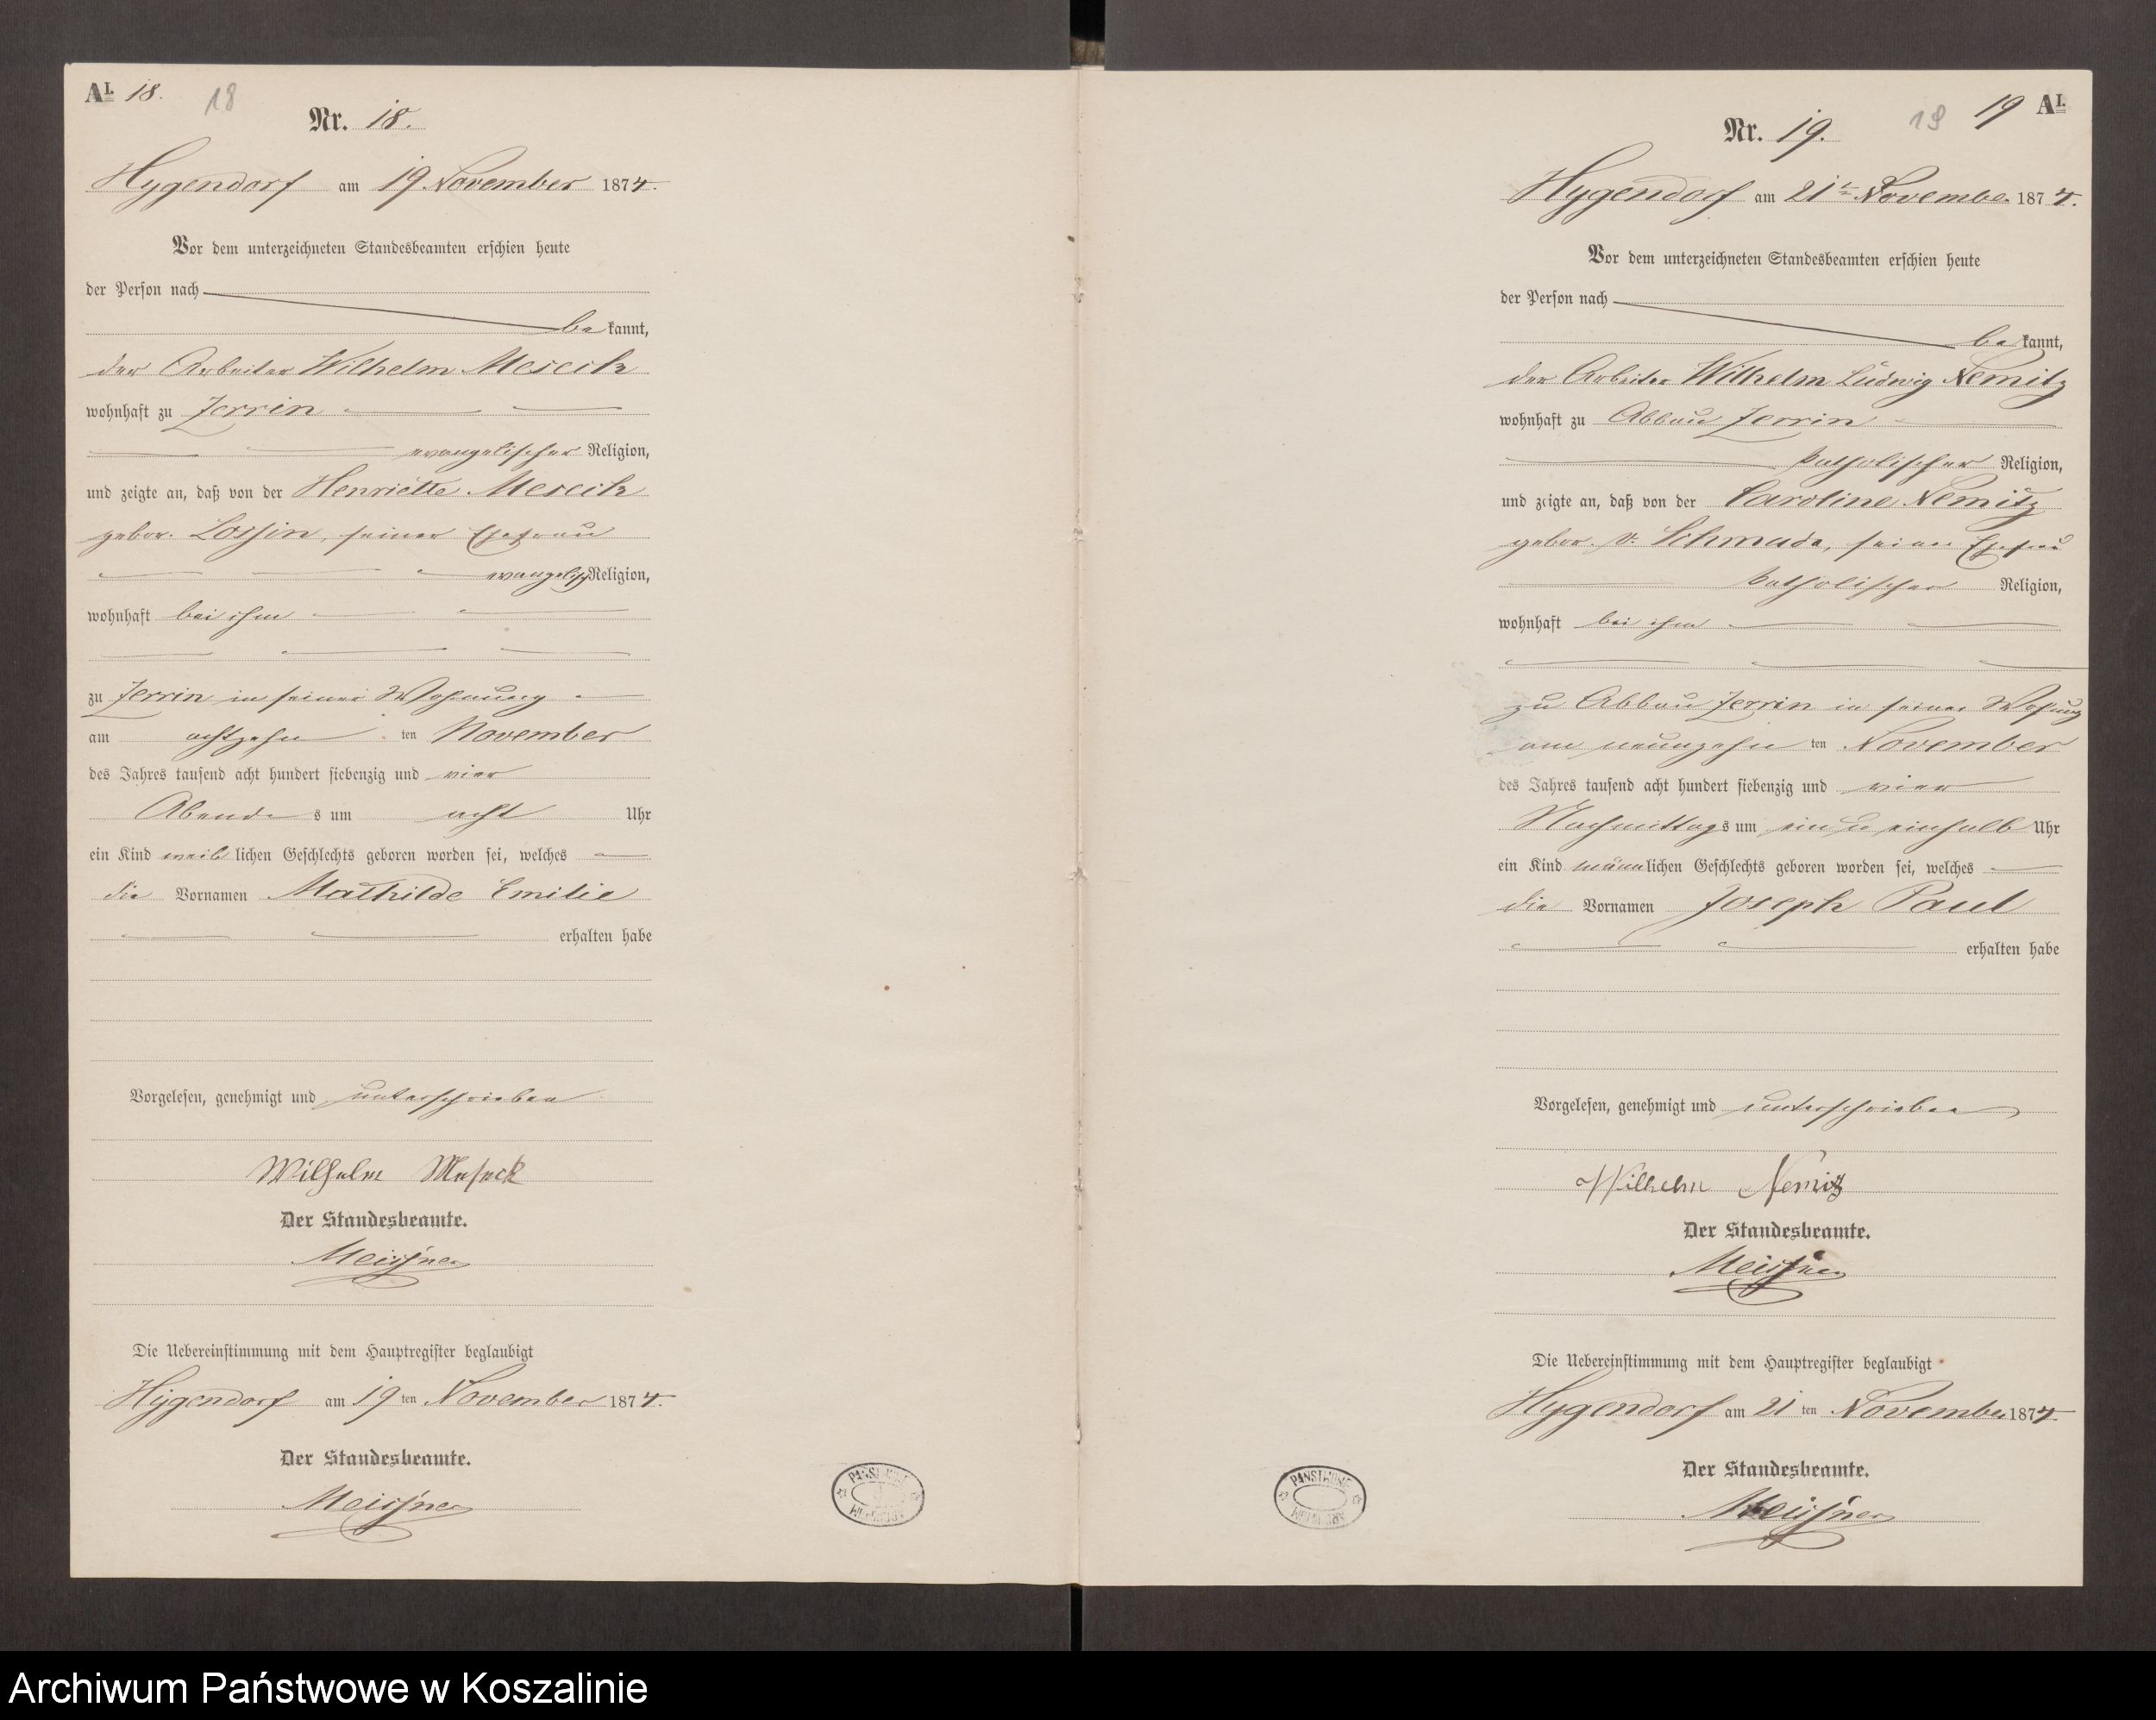 A I. 18.
18
Nr. 18.
Hygendorf am 19. November 1874.
Vor dem unterzeichneten Standesbeamten erschien heute
der Person nach
be kannt,
der Arbeiter Wilhelm
wohnhaft zu Zerrin
evangelischer Religion,
und zeigte an, daß von der Henriette
gebor. Lossin, seiner Ehefrau
evangelisch Religion,
wohnhaft bei ihm
zu Zerrin in seiner Wohnung
am achtzehn ten November
des Jahres tausend acht hundert siebenzig und vier
Abends um acht Uhr
ein Kind weiblichen Geschlechts geboren worden sei, welches
die Vornamen Mathilde Emilie
erhalten habe
Vorgelesen, genehmigt und unterschrieben
Wilhelm
Der Standesbeamte.
Meissner
Die Uebereinstimmung mit dem Hauptregister beglaubigt
Hygendorf am 19 ten November 1874.
Der Standesbeamte.
Meissner
PAŃSTWOWE ARCHIWUM
19 A I.
19
Nr. 19.
Hygendorf am 21 November 1874.
Vor dem unterzeichneten Standesbeamten erschien heute
der Person nach
be kannt,
der Arbeiter Wilhelm Ludwig Nemitz
wohnhaft zu Abbau Zerrin
katholischer Religion,
und zeigte an, daß von der Caroline Nemitz
gebor. v. Schmude, seiner Ehefrau
katholischer Religion,
wohnhaft bei ihm
zu Abbau Zerrin in seiner Wohnung
am neunzehn ten November
des Jahres tausend acht hundert siebenzig und vier
Nachmittags um ein u einhalb Uhr
ein Kind männlichen Geschlechts geboren worden sei, welches
die Vornamen Joseph Paul
erhalten habe
Vorgelesen, genehmigt und unterschrieben
Wilhelm Nemitz
Der Standesbeamte.
Meissner
Die Uebereinstimmung mit dem Hauptregister beglaubigt
Hygendorf am 21 ten November 1874.
Der Standesbeamte.
Meissner
PAŃSTWOWE ARCHIWUM
Archiwum Państwowe w Koszalinie